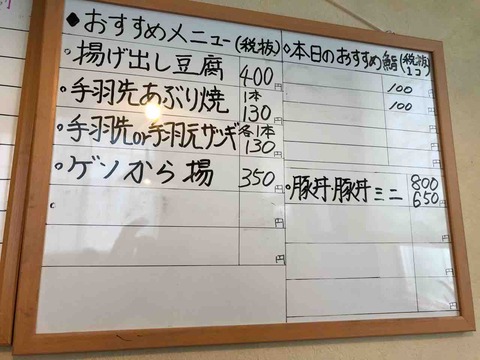 ◆おすすめメニュー(税抜)
揚げ出し豆腐 400円
手羽先あぶり焼 1本 130円
手羽先or手羽元ザンギ 各1本 130円
ゲソから揚 350円
円
円
円
◇本日のおすすめ鮨(税抜)1コ
100円
100円
円
円
豚丼・豚丼ミニ 800 650円
円
円
円